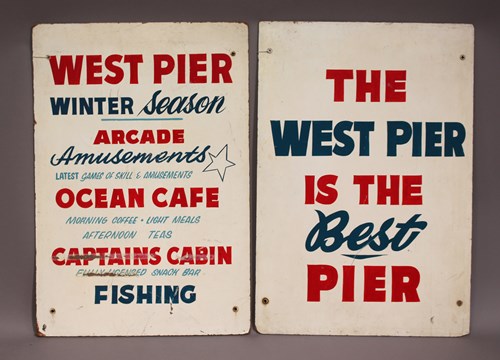 WEST PIER
WINTER Season
ARCADE
Amusements
LATEST GAMES OF SKILL & AMUSEMENTS
OCEAN CAFE
MORNING COFFEE • LIGHT MEALS
AFTERNOON TEAS
CAPTAINS CABIN
FULLY LICENSED SNACK BAR
FISHING
THE
WEST PIER
IS THE
Best
PIER